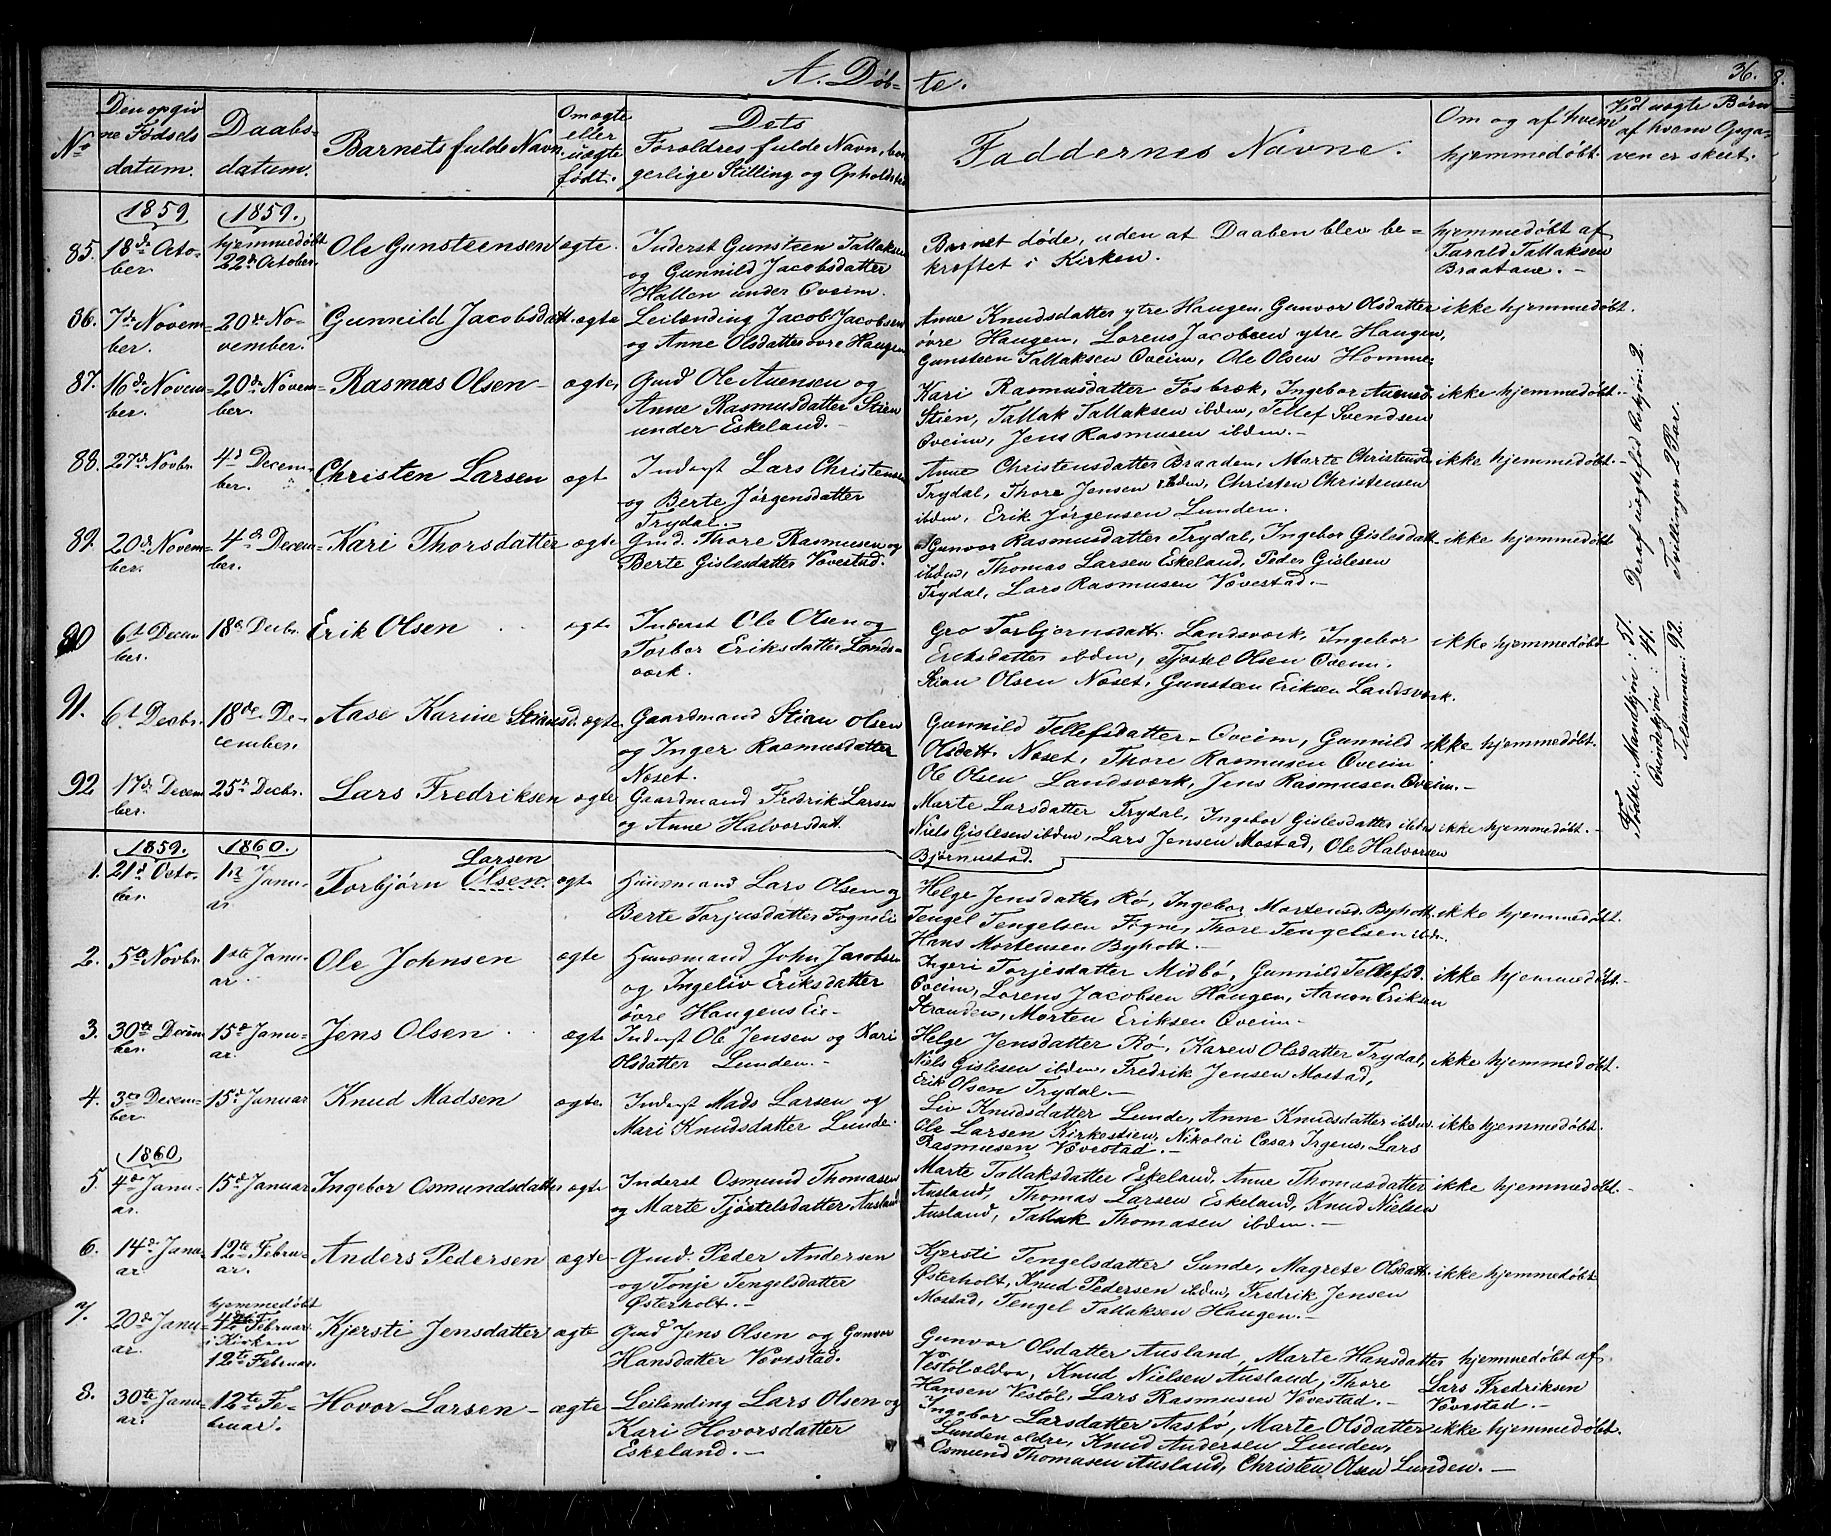 A. Døb-te. 36.
No
Den opgivne Fødselsdatum.
Daabsdatum.
Barnets fulde Navn
Om ægte eller uægte født.
Dets Forældres fulde Navn, borgerlige Stilling og Opholdssted
Faddernes Navne.
Om og af hvem hjemmedøbt.
Ved uægte Børn af hvem Opgaven er skeet.
1859 1859.
85. 18de October. hjemmedøbt 22de October. Ole Gunsteensen ægte.
Inderst Gunsteen Tallaksen
og Gunnild Jacobsdatter
Hallen under Øveim.
Barnet døde, uden at Daaben blev be-
kræftet i Kirken.
hjemmedøbt af
Tarald Tallaksen
Braatane.-
86. 7de November. 20de November. Gunnild Jacobsdatt. ægte
Leilænding Jacob Jacobsen
og Anne Olsdatter øvre Haugen
Anne Knudsdatter ytre Haugen, Gunvor Olsdatter
øvre Haugen, Lorens Jacobsen ytre Haugen,
Gunsteen Tallaksen Øveim, Ole Olsen Homme.
ikke hjemmedøbt.
87. 16de November. 20de November. Rasmus Olsen- ægte,
Gmd Ole Auensen og
Anne Rasmusdatter Stien
under Eskeland.-
Kari Rasmusdatter Fosbræk, Ingebor Auensd.
Stien, Tallak Tallaksen ibdm, Tellef Svendsen
Øveim, Jens Rasmusen ibdm.-
ikke hjemmedøbt.-
88. 27de Novbr. 4d December. Christen Larsen ægt
Inderst Lars Christensen
og Berte Jørgensdatter
Trydal.-
Anne Christensdatter Braaden, Marte Christensd
Trydal, Thore Jensen ibdm, Christen Christensen
ibdm, Erik Jørgensen Lunden.-
ikke hjemmedøbt.-
89. 20de November. 4de December. Kari Thorsdatter ægte
Gmd. Thore Rasmusen og
Berte Gislesdatter Vævestad.
Gunvor Rasmusdatter Trydal, Ingebor Gislesdatt.
ibdm, Thomas Larsen Eskeland, Peder Gislesen
Trydal, Lars Rasmusen Vævestad.-
ikke hjemmedøbt
90 6t December. 18de Decbr. Erik Olsen ægte
Inderst Ole Olsen og
Torbor Eriksdatter Lands-
værk.
Gro Torbjørnsdatt. Landsværk, Ingebor
Eriksdatter ibdm, Tjøstel Olsen Øveim.
Stian Olsen Næset, Gunsteen Eriksen Landsværk.
ikke hjemmedøbt
91. 6t Decbr. 18de December. Aase Karine Stiansd. ægte
Gaardmand Stian Olsen
og Inger Rasmusdatter
Næset.
Gunnild Tellefsdatter Øveim, Gunnild
Olsdatt. Næset, Thore Rasmusen Øveim
Ole Olsen Landsværk, Jens Rasmusen Øveim.-
ikke hjemmedøbt.
92 17de December. 25de Decbr. Lars Fredriksen ægte
Gaardmand Fredrik Larsen
og Anne Halvorsdatt.
Marte Larsdatter Trydal, Ingebor Gislesdatter ibdm
Niels Gislesen ibdm, Lars Jensen Mostad, Ole Halvorsen
Bjørnustad.
ikke hjemmedøbt.-
Fødte: Mandkjøn: 51. Deraf uægtefød Mkjøn: 2.
Qvindekjøn: 41. Tvillinger: 2 Par.
Tilsammen: 92.
1859. 1860.
1. 21d October. 1ste Januar. Torbjørn Olsen Larsen ægte
Huusmand Lars Olsen og
Berte Torjusdatter Fogneli
Helge Jensdatter Rø, Ingebor Mortensd. Byholt
Tengel Tengelsen Fogne, Thore Tengelsen ibdm.
Hans Mortensen Byholt.-
ikke hjemmedøbt.
2. 5te Novbr. 1ste Januar. Ole Johnsen ægte
Huusmand John Jacobsen
og Ingeliv Eriksdatter
øvre Haugens Eie-
Ingeri Torjesdatter Midbø, Gunnild Tellefsd.
Øveim, Lorens Jacobsen Haugen, Aanon Eriksen
Stranden, Morten Eriksen Øveim-
ikke hjemmedøbt.-
3. 30te December. 15de Januar. Jens Olsen ægte
Inderst Ole Jensen og Kari
Olsdatter Lunden.-
Helge Jensdatter Rø, Karen Olsdatter Trydal,
Niels Gislesen ibdm, Fredrik Jensen Mostad,
Erik Olsen Trydal.-
ikke hjemmedøbt.
4. 3die December. 15de Januar Knud Madsen ægte
Inderst Mads Larsen og
Mari Knudsdatter Lunde.
Liv Knudsdatter Lunde, Anne Knudsdatter ibdm
Ole Larsen Kirkestien, Nikolai Cæsar Irgens, Lars
Rasmusen Vævestad.-
ikke hjemmedøbt.
1860
5. 4de Januar. 15de Januar Ingebor Osmundsdatter ægte
Inderst Osmund Thomasen
og Marte Tjøstelsdatter Ausland
Marte Tallaksdatter Eskeland, Anne Thomasdatter
Ausland, Thomas Larsen Eskeland, Knud Nielsen
Ausland, Tallak Thomasen ibdm.-
ikke hjemmedøbt.-
6. 14de Januar 12te Februar. Anders Pedersen ægte
Gmd. Peder Andersen
og Tonje Tengelsdatter
Østerholt.-
Kjersti Tengelsdatter Lunde, Magrete Olsdatt.
Østerholt, Knud Pedersen ibdm, Fredrik Jensen
Mostad, Tengel Tallaksen Haugen.-
ikke hjemmedøbt
7. 20de Januar. hjemmedøbt 4de Februar i Kirken 12te Februar. Kjersti Jensdatter ægte
Gmd Jens Olsen og Gunvor
Hansdatter Vævestad.
Gunvor Olsdatter Ausland, Marte Hansdatter
Vestøl ældre, Knud Nielsen Ausland, Thore
Hansen Vestøl, Lars Rasmusen Vævestad.-
hjemmedøbt af
Lars Fredriksen
Vævestad.-
8. 30te Januari. 12te Februar. Hovor Larsen- ægte
Leilending Lars Olsen og
Kari Hovorsdatter
Eskeland.-
Ingebor Larsdatter Aasbø, Marte Olsdatter
Lunden ældre, Knud Andersen Lunden,
Osmund Thomasen Ausland, Christen Olsen Lunden.-
ikke hjemmedøbt.